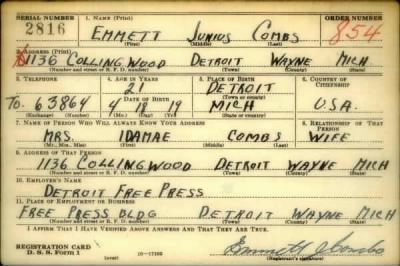 SERIAL NUMBER 1. NAME (Print) ORDER NUMBER
2816 EMMETT JUNIUS COMBS 854
(First) (Middle) (Last)
2. ADDRESS (Print)
1136 COLLINGWOOD DETROIT WAYNE MICH
(Number and street or R. F. D. number) (Town) (County) (State)
3. TELEPHONE 4. AGE IN YEARS 5. PLACE OF BIRTH 6. COUNTRY OF CITIZENSHIP
21 DETROIT
DATE OF BIRTH (Town or county)
TO. 63864 4 19 MICH U.S.A.
(Exchange) (No.) (Mo.) (Day) (Yr.) (State or country)
7. NAME OF PERSON WHO WILL ALWAYS KNOW YOUR ADDRESS 8. RELATIONSHIP OF THAT PERSON
MRS. IDAMAE COMBS WIFE
(Mr., Mrs., Miss) (First) (Middle) (Last)
9. ADDRESS OF THAT PERSON
1136 COLLINGWOOD DETROIT WAYNE MICH
(Number and street or R. F. D. number) (Town) (County) (State)
10. EMPLOYER'S NAME
DETROIT FREE PRESS
11. PLACE OF EMPLOYMENT OR BUSINESS
FREE PRESS BLDG DETROIT WAYNE MICH
(Number and street or R. F. D. number) (Town) (County) (State)
I AFFIRM THAT I HAVE VERIFIED ABOVE ANSWERS AND THAT THEY ARE TRUE.
REGISTRATION CARD Emmett J Combs
D. S. S. Form 1 (over) (Registrant's signature)